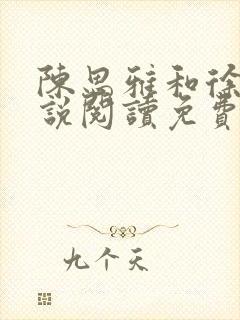 陳思雅和徐
說閱讀免費
九个天